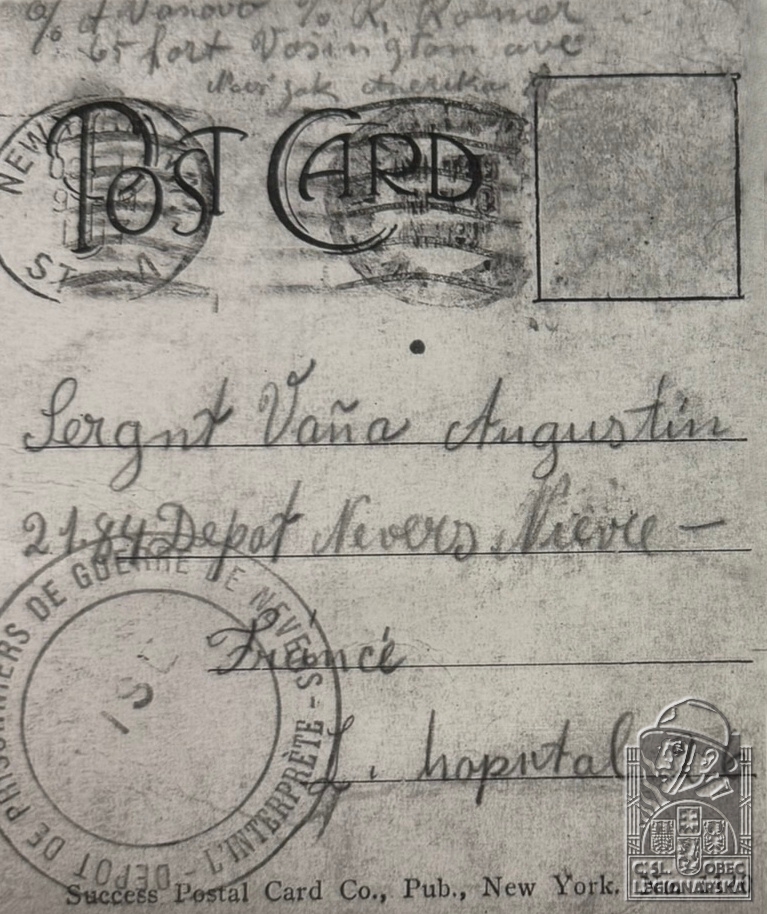 % A Vanova % R. Roemer
65 fort Vosington ave
jak Amerika
NEW
POST CARD
STA
Sergnt Vaňa Augustin
2184 Depot Nevers Nievre —
DEPOT DE PRISONNIERS DE GUERRE DE NEVERS - L'INTERPRÈTE -
Francé
L. hopntal
Success Postal Card Co., Pub., New York.
ČSL. OBEC
LEGIONÁŘSKÁ